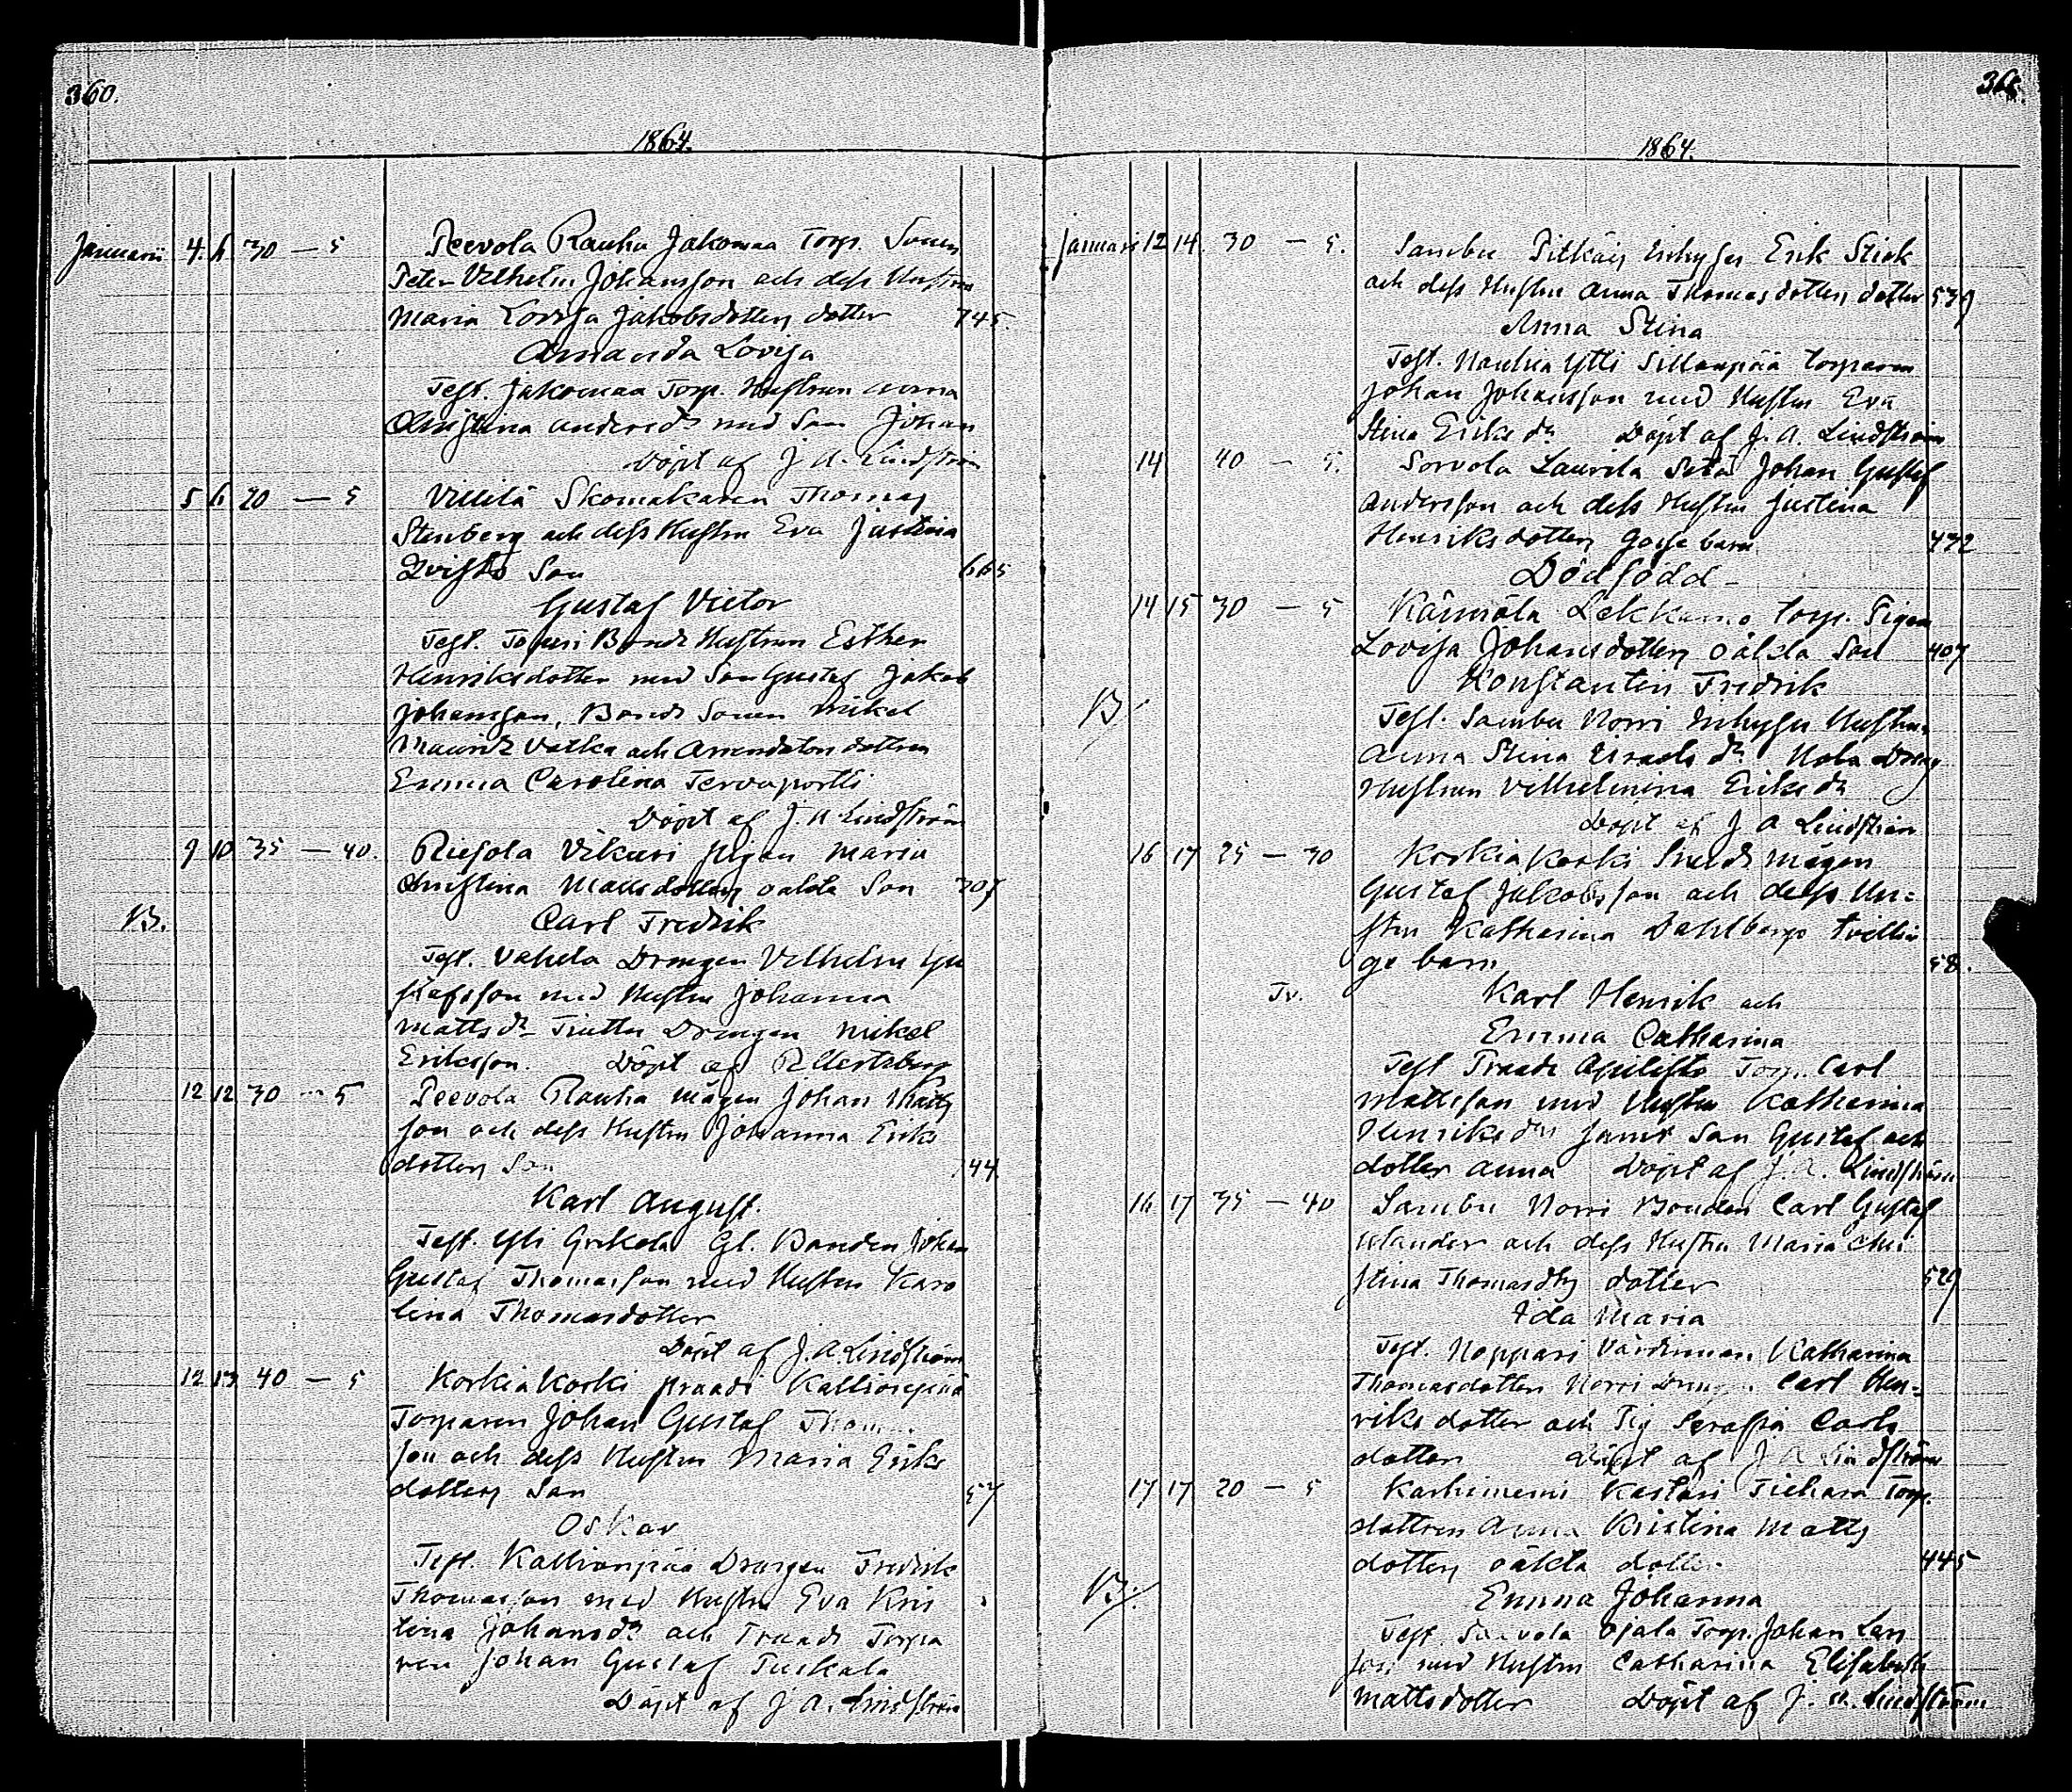 360.
1864.
Januarii 4. 6 30 — 5 Peevola Rauha Jakomaa Torp. Sonen
Peter Vilhelm Johansson och dess Hustru
Maria Lovisa Jakobsdotters dotter 745.
Amanda Lovisa
Test. Jakomaa Torp. Hustrun Anna
Christina Andersdr med Son Johan
Döpt af J. A. Lindström
5 6 20 — 5 Skomakaren Thomas
Stenberg och dess Hustru Eva Justina
Qvists Son 665
Gustaf Victor
Test. Bonde Hustrun Esther
Henriksdotter med Son Gustaf Jakob
Johansson, Bonde Sonen Mikel
och Arrendator dottren
Emma Carolina Tervaportti
Döpt af J. A. Lindström
9 10 35 — 40. Pigan Maria
Christina Mattsdotters oäkta Son
B.
Carl Fredrik
Test. Vahela Drengen Vilhelm Gu
stafsson med Hustru Johanna
Mattsdr Drengen Mikel
Eriksson. Döpt af
12 12 30 — 5 Peevola Rauha mågen Johan Matts
son och dess Hustru Johanna Eriks
dotters Son 744.
Karl August.
Test. Yli Gl. Bonden Johan
Gustaf Thomasson med Hustru Karo
lina Thomasdotter
Döpt af J. A. Lindström
12 13 40 — 5 Korkiakoski Praadi Kallionpää
Torparen Johan Gustaf
son och dess Hustru Maria Eriks
dotters Son 57
Oskar
Test. Kallionpää Drengen Fredrik
Thomasson med Hustru Eva Kris
tina Johansdr och Praadi Torpa
ren Johan Gustaf Tuskala
Döpt af J. A. Lindström
1864.
Januarii 12 14. 30 — 5. Sambu Pitkäis Inhyses Erik Stick
och dess Hustru Anna Thomasdotters dotter 539
Anna Stina
Test. Nauhia Ytti Sillanpää torparen
Johan Johansson med Hustru Eva
Stina Eriksdr Döpt af J. A. Lindström
14 40 — 5. Sorvola Laurila Johan Gustaf
Andersson och dess Hustru Justina
Henriksdotters Gosse barn 472
Dödfödd
14 15 30 — 5 torp. Pigan
Lovisa Johansdotters oäkta Son 407
Konstantin Fredrik
B
Test. Sambu Norri Inhyses Hustru
Anna Stina dr Nola Dreng
Hustrun Vilhelmina Eriksdr
Döpt af J A Lindström
16 17 25 — 30 Korkiakoski mågen
Gustaf Jakobsson och dess Hu=
stru Katharina Dahlbergs tvillin
ge barn 58.
Tv. Karl Henrik och
Emma Catharina
Test. Praadi Torp. Carl
Mattsson med Hustru Katharina
Henriksdr samt Son Gustaf och
dotter Anna Döpt af J. A. Lindström
16 17 35 — 40 Sambu Norri Bonden Carl Gustaf
och dess Hustru Maria Chri
stina Thomasdtrs dotter 529
Ida Maria
Test. Noppari Värdinnan Katharina
Thomasdotter Norri Carl Hen=
riks dotter och Pig Serafia Carls
dotter Döpt af J A Lindström
17 17 20 — 5 Karhiniemi Kestari Torp.
dottren Anna Kristina Matts
dotters oäkta dotter 445
B.
Emma Johanna
Test. Sorvola Ojala Torp. Johan Lars
son med Hustru Catharina Elisabeth
Mattsdotter Döpt af J. A. Lindström